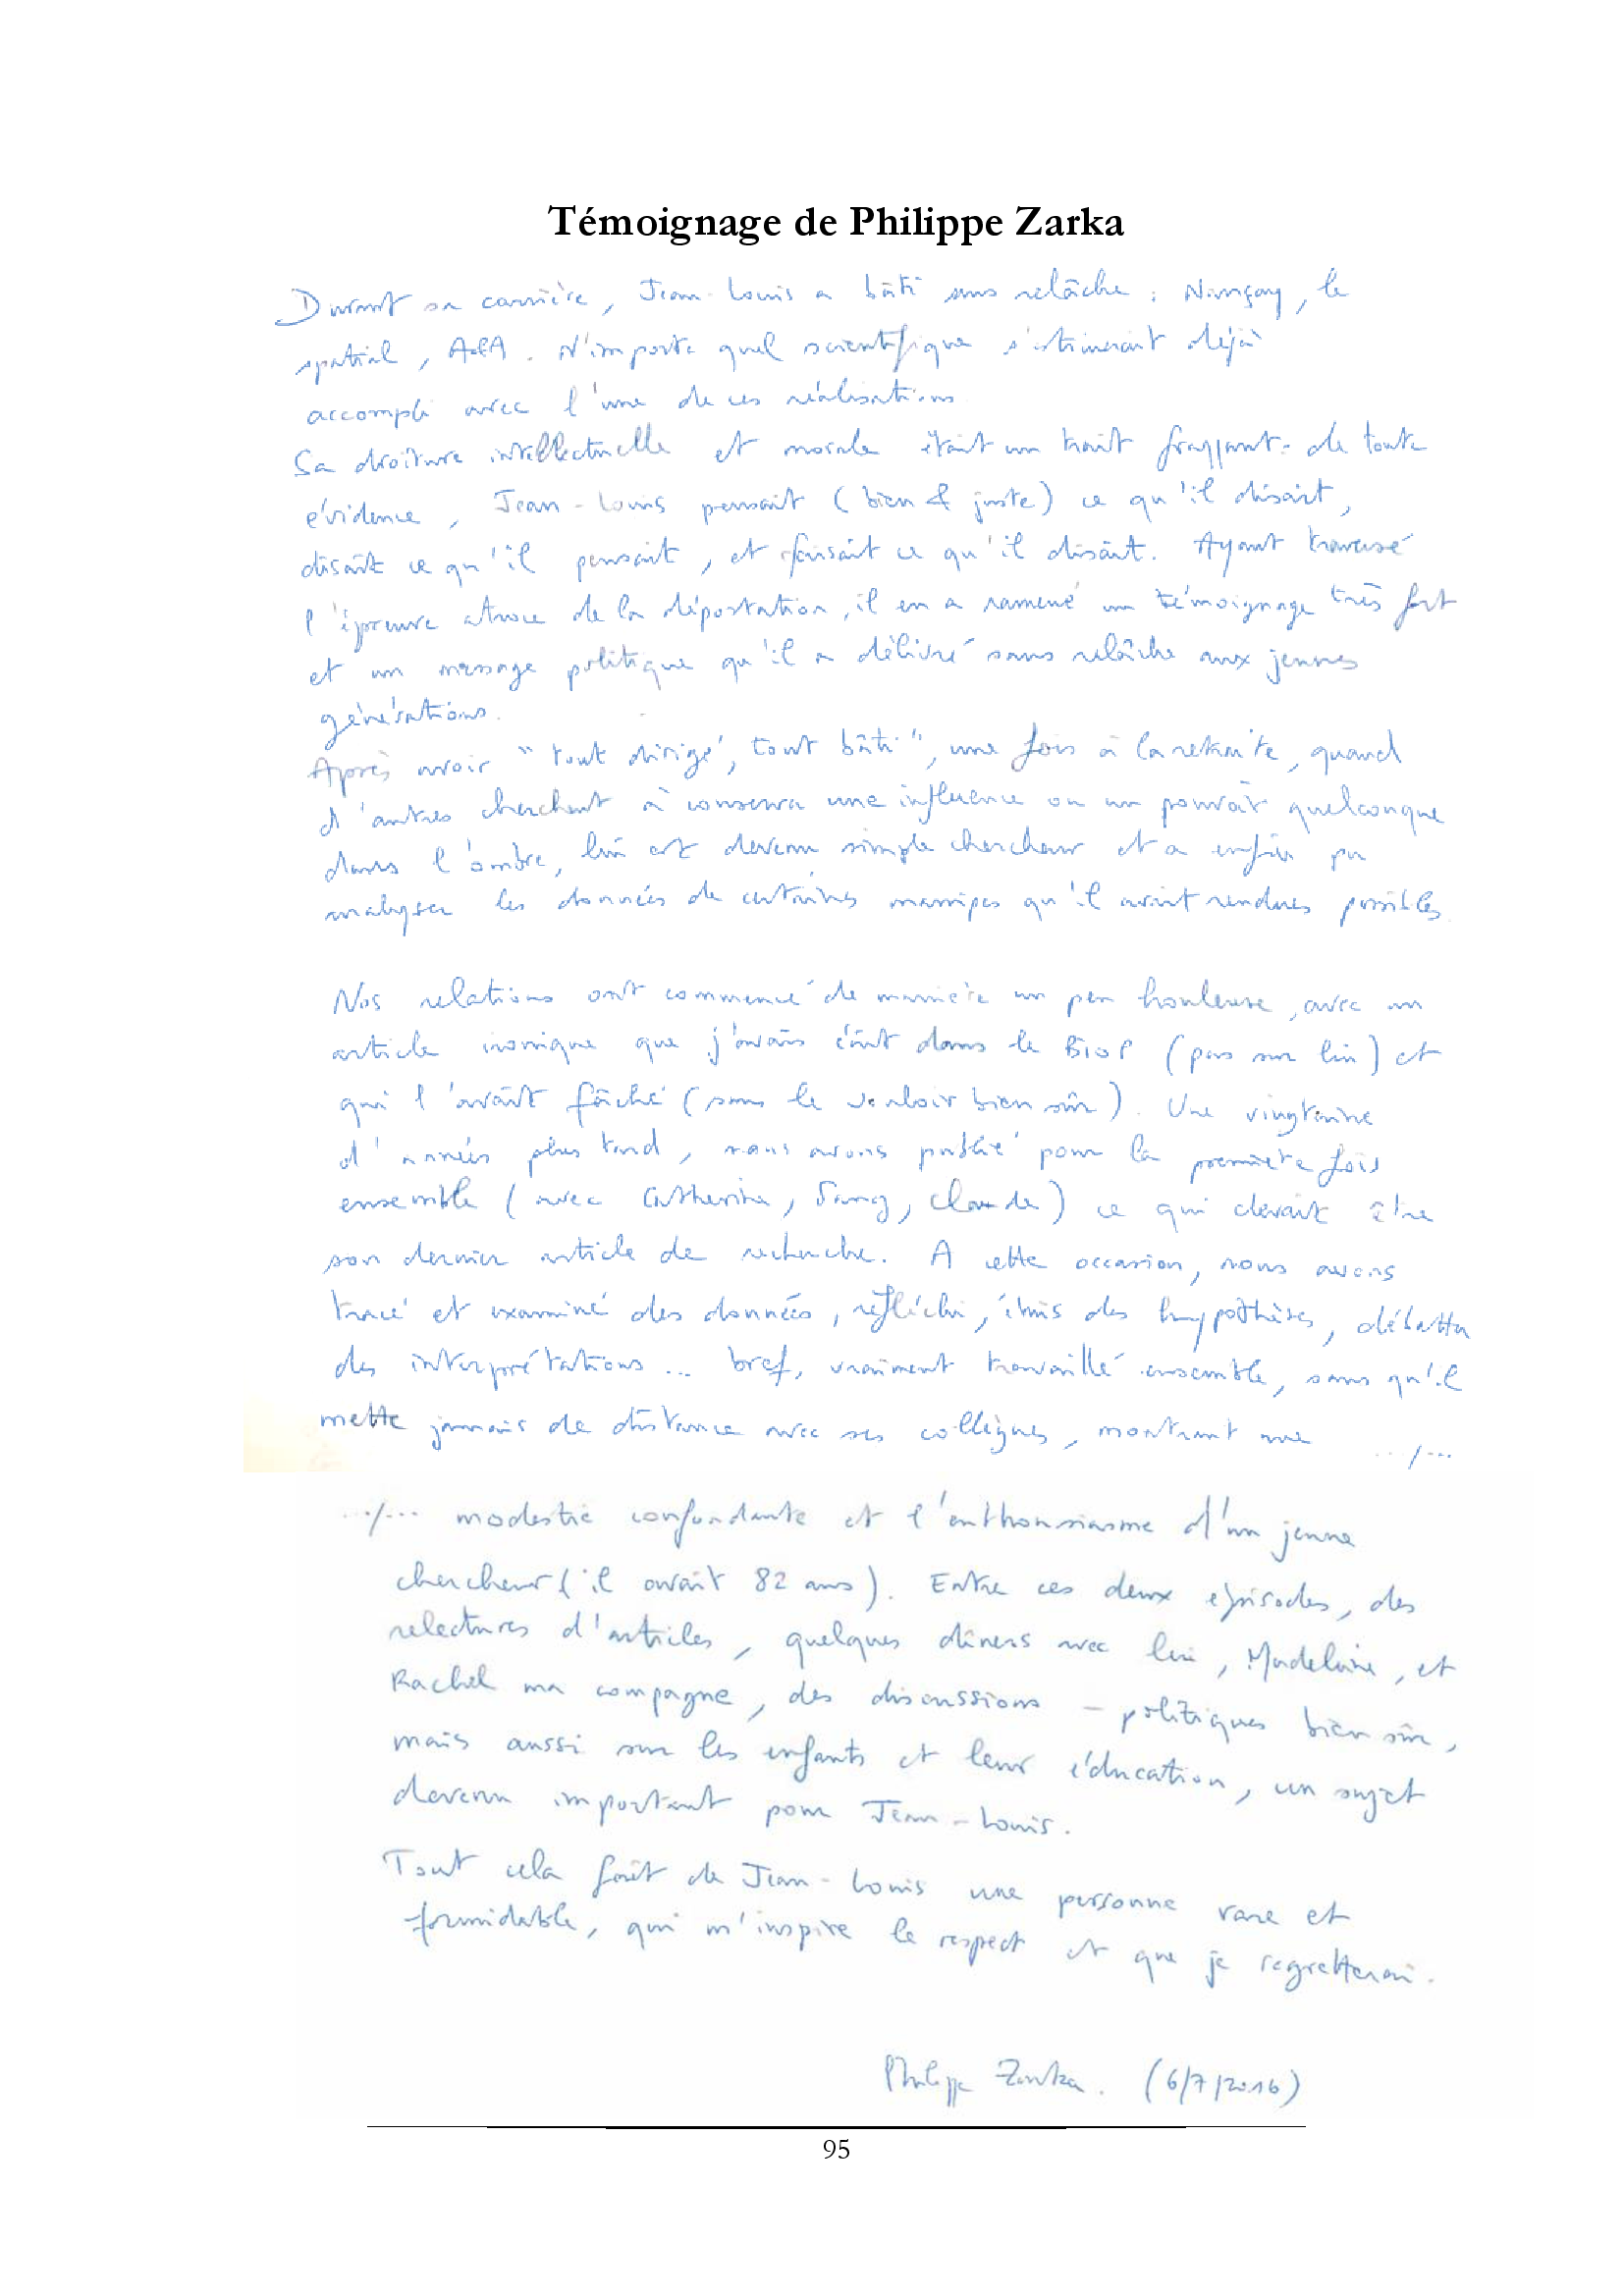 Témoignage de Philippe Zarka
Durant sa carrière, Jean-Louis a bâti sans relâche : Nançay, le
spatial, A&A. N'importe quel scientifique s'estimerait déjà
accompli avec l'une de ces réalisations.
Sa droiture intellectuelle et morale était un trait frappant : de toute
évidence, Jean-Louis pensait (bien & juste) ce qu'il disait,
disait ce qu'il pensait, et faisait ce qu'il disait. Ayant traversé
l'épreuve atroce de la déportation, il en a ramené un témoignage très fort
et un message politique qu'il a délivré sans relâche aux jeunes
générations.
Après avoir "tout dirigé, tout bâti", une fois à la retraite, quand
d'autres cherchent à conserver une influence ou un pouvoir quelconque
dans l'ombre, lui est devenu simple chercheur et a enfin pu
analyser les données de certaines manips qu'il avait rendues possibles.
Nos relations ont commencé de manière un peu houleuse, avec un
article ironique que j'avais écrit dans le BIOP (pas sur lui) et
qui l'avait fâché (sans le vouloir bien sûr). Une vingtaine
d'années plus tard, nous avons publié pour la première fois
ensemble (avec Catherine, Sang, Claude) ce qui devait être
son dernier article de recherche. A cette occasion, nous avons
tracé et examiné des données, réfléchi, émis des hypothèses, débattu
des interprétations... bref, vraiment travaillé ensemble, sans qu'il
mette jamais de distance avec ses collègues, montrant une .../...
.../... modestie confondante et l'enthousiasme d'un jeune
chercheur (il avait 82 ans). Entre ces deux épisodes, des
relectures d'articles, quelques dîners avec lui, Madeleine, et
Rachel ma compagne, des discussions – politiques bien sûr,
mais aussi sur les enfants et leur éducation, un sujet
devenu important pour Jean-Louis.
Tout cela fait de Jean-Louis une personne rare et
formidable, qui m'inspire le respect et que je regretterai.
Philippe Zarka. (6/7/2016)
95